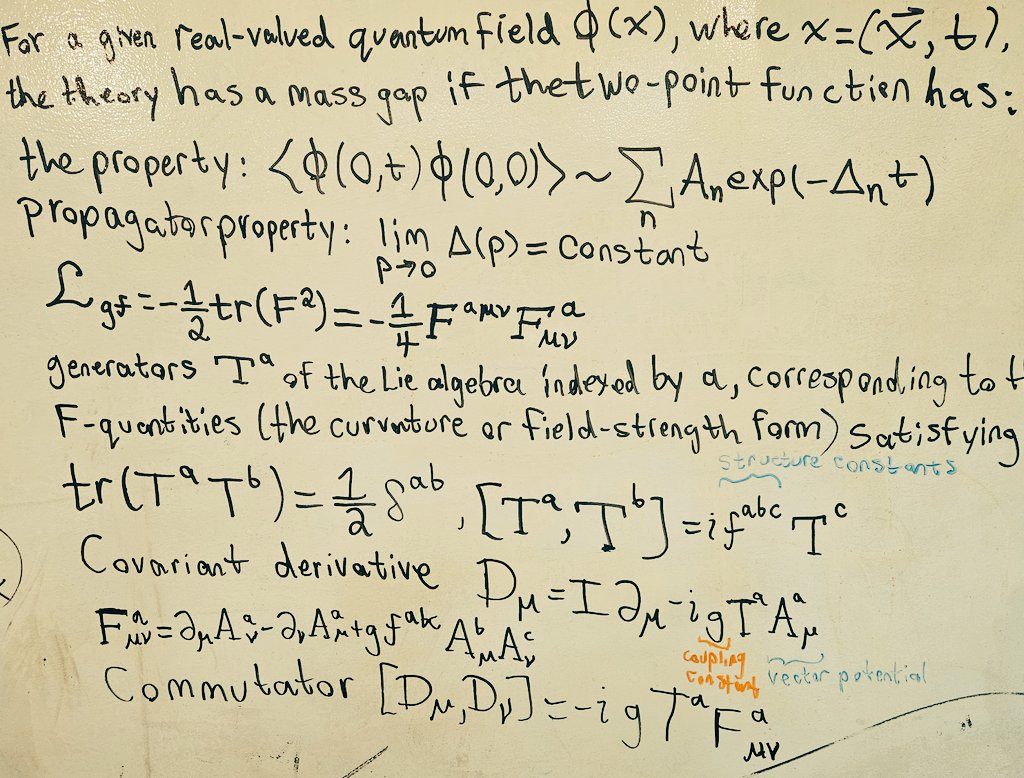 For a given real-valued quantum field ϕ(x), where x=(x⃗, t),
the theory has a mass gap if the two-point function has:
the property: ⟨ϕ(0,t)ϕ(0,0)⟩ ~ ∑ₙ Aₙ exp(-Δₙt)
Propagator property: lim_{p→0} Δ(p) = Constant
ℒ_gf = -1/2 tr(F²) = -1/4 F^{aμν} F^a_{μν}
generators T^a of the Lie algebra indexed by a, corresponding to t
F-quantities (the curvature or field-strength form) satisfying
structure constants
tr(T^a T^b) = 1/2 δ^{ab}, [T^a, T^b] = i f^{abc} T^c
Covariant derivative D_μ = I ∂_μ - i g T^a A^a_μ
F^a_{μν} = ∂_μ A^a_ν - ∂_ν A^a_μ + g f^{abc} A^b_μ A^c_ν
coupling constant
vector potential
Commutator [D_μ, D_ν] = -i g T^a F^a_{μν}